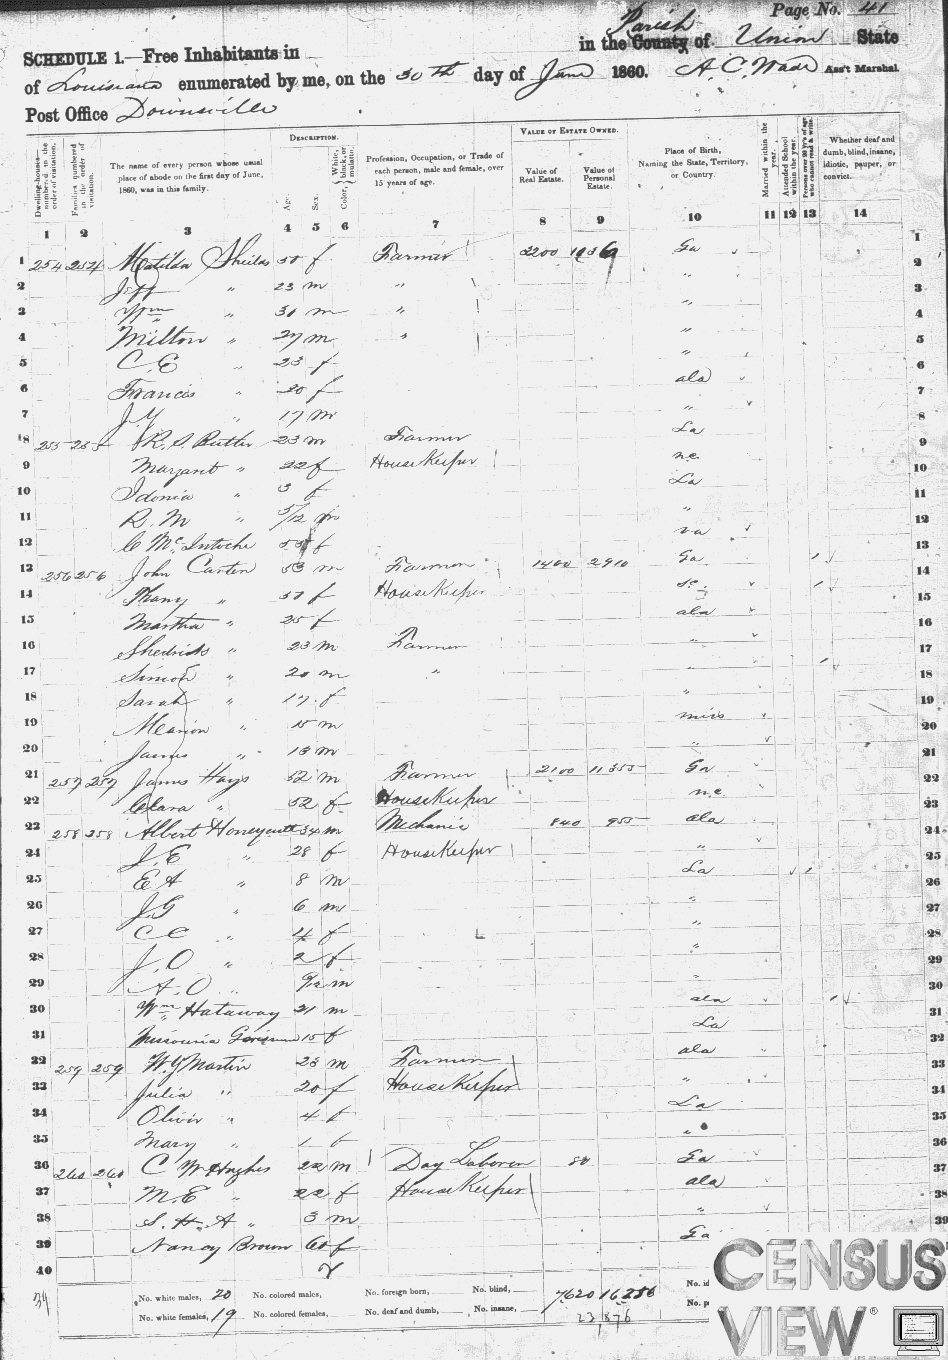 Page No. 41
SCHEDULE 1.—Free Inhabitants in in the County Parish of Union State
of Louisiana enumerated by me, on the 30th day of June 1860. A. C. Wade Ass't Marshal.
Post Office Downsville
Dwelling-houses numbered in the order of visitation.
Families numbered in the order of visitation.
The name of every person whose usual place of abode on the first day of June, 1860, was in this family.
DESCRIPTION.
Age.
Sex.
Color, White, black, or mulatto.
Profession, Occupation, or Trade of each person, male and female, over 15 years of age.
VALUE OF ESTATE OWNED.
Value of Real Estate.
Value of Personal Estate.
Place of Birth, Naming the State, Territory, or Country.
Married within the year.
Attended School within the year.
Persons over 20 y'rs of age who cannot read & write.
Whether deaf and dumb, blind, insane, idiotic, pauper, or convict.
1 2 3 4 5 6 7 8 9 10 11 12 13 14
1 254 254 Matilda Shields 50 f Farmer 3200 Ga 1
2 Jeff " 23 m " " 2
3 Wm " 31 m " " 3
4 Milton " 27 m " " 4
5 C. E " 23 f " 5
6 Francis " 20 f ala 6
7 J. Y " 17 m " 7
8 255 255 R. S. Butler 23 m Farmer La 8
9 Margaret " 22 f HouseKeeper n.c. 9
10 Idonia " 3 f La 10
11 R. M " 5/12 m " 11
12 C McIntoche 55 f va 12
13 256 256 John Carter 53 m Farmer 1400 2910 Ga 13
14 Thany " 51 f HouseKeeper sc. 14
15 Martha " 25 f ala 15
16 Shedrick " 23 m Farmer " 16
17 Simon " 20 m " " 17
18 Sarah " 17 f " 18
19 Marion " 15 m miss 19
20 James " 13 m " 20
21 257 257 James Hays 52 m Farmer 2100 11355 Ga 21
22 Clara " 52 f HouseKeeper n.c. 22
23 258 258 Albert Honeycutt 34 m Mechanic 840 955 ala 23
24 J. E " 28 f HouseKeeper " 24
25 E A " 8 m La 25
26 J. G " 6 m " 26
27 C C " 4 f " 27
28 J. O " 2 f " 28
29 A. O " 9/12 m " 29
30 Wm Hataway 21 m ala 30
31 Missouria 15 f La 31
32 259 259 W. Y Martin 23 m Farmer ala 32
33 Julia " 20 f HouseKeeper " 33
34 Oliver " 4 La 34
35 Mary " 1 " 35
36 260 260 C W Hughes 22 m Day Laborer 80 Ga 36
37 M. E " 22 f HouseKeeper ala 37
38 S. H. A " 3 m " 38
39 Nancy Brown 60 f Ga 39
40
No. white males, 20 No. colored males, No. foreign born, No. blind, 7620 16256 No. id
No. white females, 19 No. colored females, No. deaf and dumb, No. insane, 23876 No. p
CENSUS
VIEW®